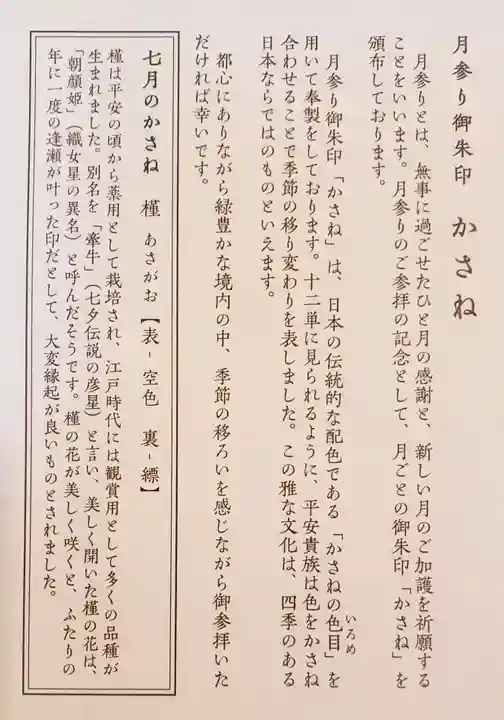 月参り御朱印　かさね
月参りとは、無事に過ごせたひと月の感謝と、新しい月のご加護を祈願する
ことをいいます。月参りのご参拝の記念として、月ごとの御朱印「かさね」を
頒布しております。
月参り御朱印「かさね」は、日本の伝統的な配色である「かさねの色目」を
いろめ
用いて奉製をしております。十二単に見られるように、平安貴族は色をかさね
合わせることで季節の移り変わりを表しました。この雅な文化は、四季のある
日本ならではのものといえます。
都心にありながら緑豊かな境内の中、季節の移ろいを感じながら御参拝いた
だければ幸いです。
七月のかさね　槿　あさがお【表-空色　裏-縹】
槿は平安の頃から薬用として栽培され、江戸時代には観賞用として多くの品種が
生まれました。別名を「牽牛」（七夕伝説の彦星）と言い、美しく開いた槿の花は、
「朝顔姫」（織女星の異名）と呼んだそうです。槿の花が美しく咲くと、ふたりの
年に一度の逢瀬が叶った印だとして、大変縁起が良いものとされました。